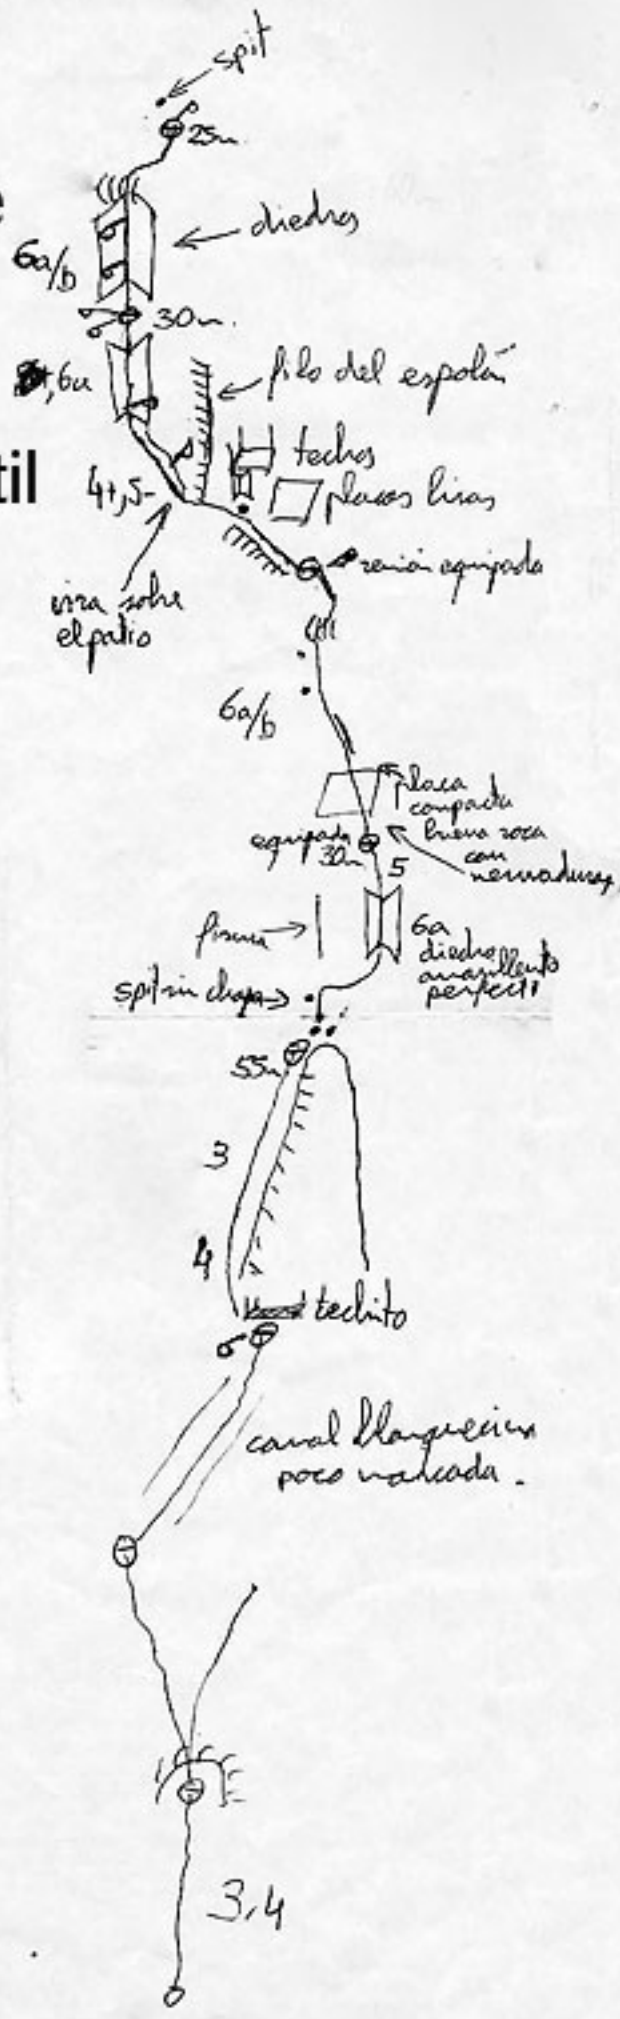 spit
25m
diedros
6a/b
30m.
,6a
filo del espolón
til
techos
4+,5-
placas lisas
reunión equipada
vira sobre
el patio
6a/b
placa
compacta
buena roca
con
nervaduras
equipada
30m
5
fisura
6a
diedro
amarillento
perfecto
spit sin chapa
55m
3
4
techito
canal blanquecina
poco marcada.
3,4